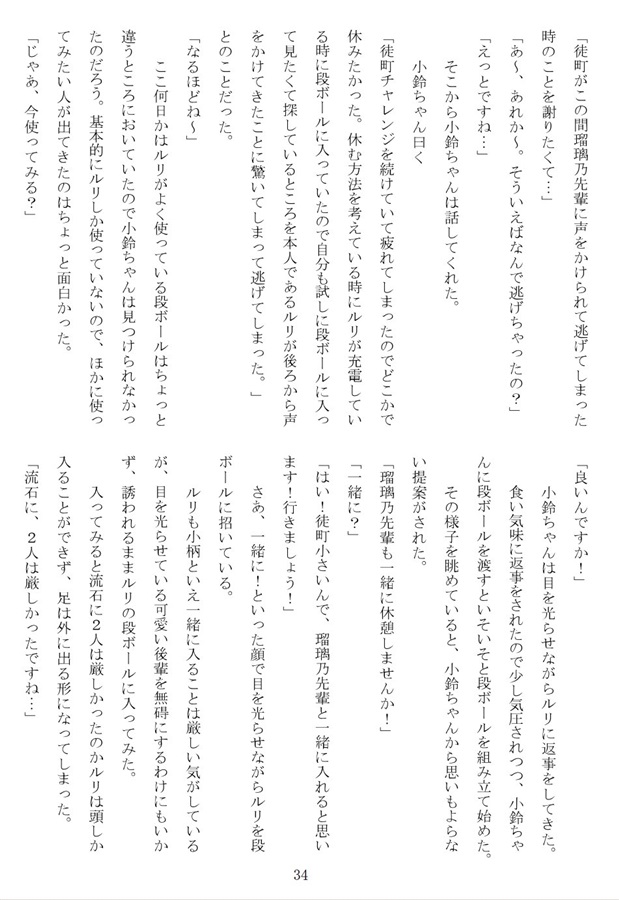 「徒町がこの間瑠璃乃先輩に声をかけられて逃げてしまった
時のことを謝りたくて…」
「あ～、あれか～。そういえばなんで逃げちゃったの？」
「えっとですね…」
そこから小鈴ちゃんは話してくれた。
小鈴ちゃん曰く
「徒町チャレンジを続けていて疲れてしまったのでどこかで
休みたかった。休む方法を考えている時にルリが充電してい
る時に段ボールに入っていたので自分も試しに段ボールに入っ
て見たくて探しているところを本人であるルリが後ろから声
をかけてきたことに驚いてしまって逃げてしまった。」
とのことだった。
「なるほどね～」
ここ何日かはルリがよく使っている段ボールはちょっと
違うところにおいていたので小鈴ちゃんは見つけられなかっ
たのだろう。基本的にルリしか使っていないので、ほかに使っ
てみたい人が出てきたのはちょっと面白かった。
「じゃあ、今使ってみる？」
「良いんですか！」
小鈴ちゃんは目を光らせながらルリに返事をしてきた。
食い気味に返事をされたので少し気圧されつつ、小鈴ちゃ
んに段ボールを渡すといそいそと段ボールを組み立て始めた。
その様子を眺めていると、小鈴ちゃんから思いもよらな
い提案がされた。
「瑠璃乃先輩も一緒に休憩しませんか！」
「一緒に？」
「はい！徒町小さいんで、瑠璃乃先輩と一緒に入れると思い
ます！行きましょう！」
さあ、一緒に！といった顔で目を光らせながらルリを段
ボールに招いている。
ルリも小柄といえ一緒に入ることは厳しい気がしている
が、目を光らせている可愛い後輩を無碍にするわけにもいか
ず、誘われるままルリの段ボールに入ってみた。
入ってみると流石に２人は厳しかったのかルリは頭しか
入ることができず、足は外に出る形になってしまった。
「流石に、２人は厳しかったですね…」
34